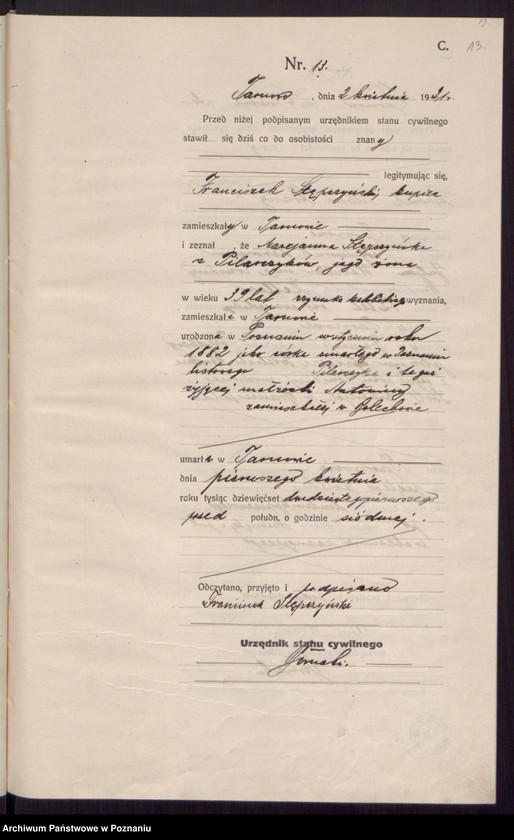 C.
13.
Nr. 13.
Tarnowo, dnia 2 kwietnia 1921r.
Przed niżej podpisanym urzędnikiem stanu cywilnego
stawił się dziś co do osobistości znany
legitymując się,
Franciszek Stępczyński, kupiec
zamieszkały w Tarnowie
i zeznał, że Marjanna Stępczyńska
z Pilarczyków, jego żona
w wieku 39 lat rzymsko katolickiego wyznania,
zamieszkała w Tarnowie
urodzona w Poznaniu w styczniu roku
1882 jako córka zmarłego w Poznaniu
Pilarczyka i tegoż
żyjącej małżonki Antoniny
zamieszkałej w
umarła w Tarnowie
dnia pierwszego kwietnia
roku tysiąc dziewięćset dwudziestego pierwszego
przed połudn. o godzinie siódmej.
Odczytano, przyjęto i podpisano
Franciszek Stępczyński
Urzędnik stanu cywilnego
Archiwum Państwowe w Poznaniu